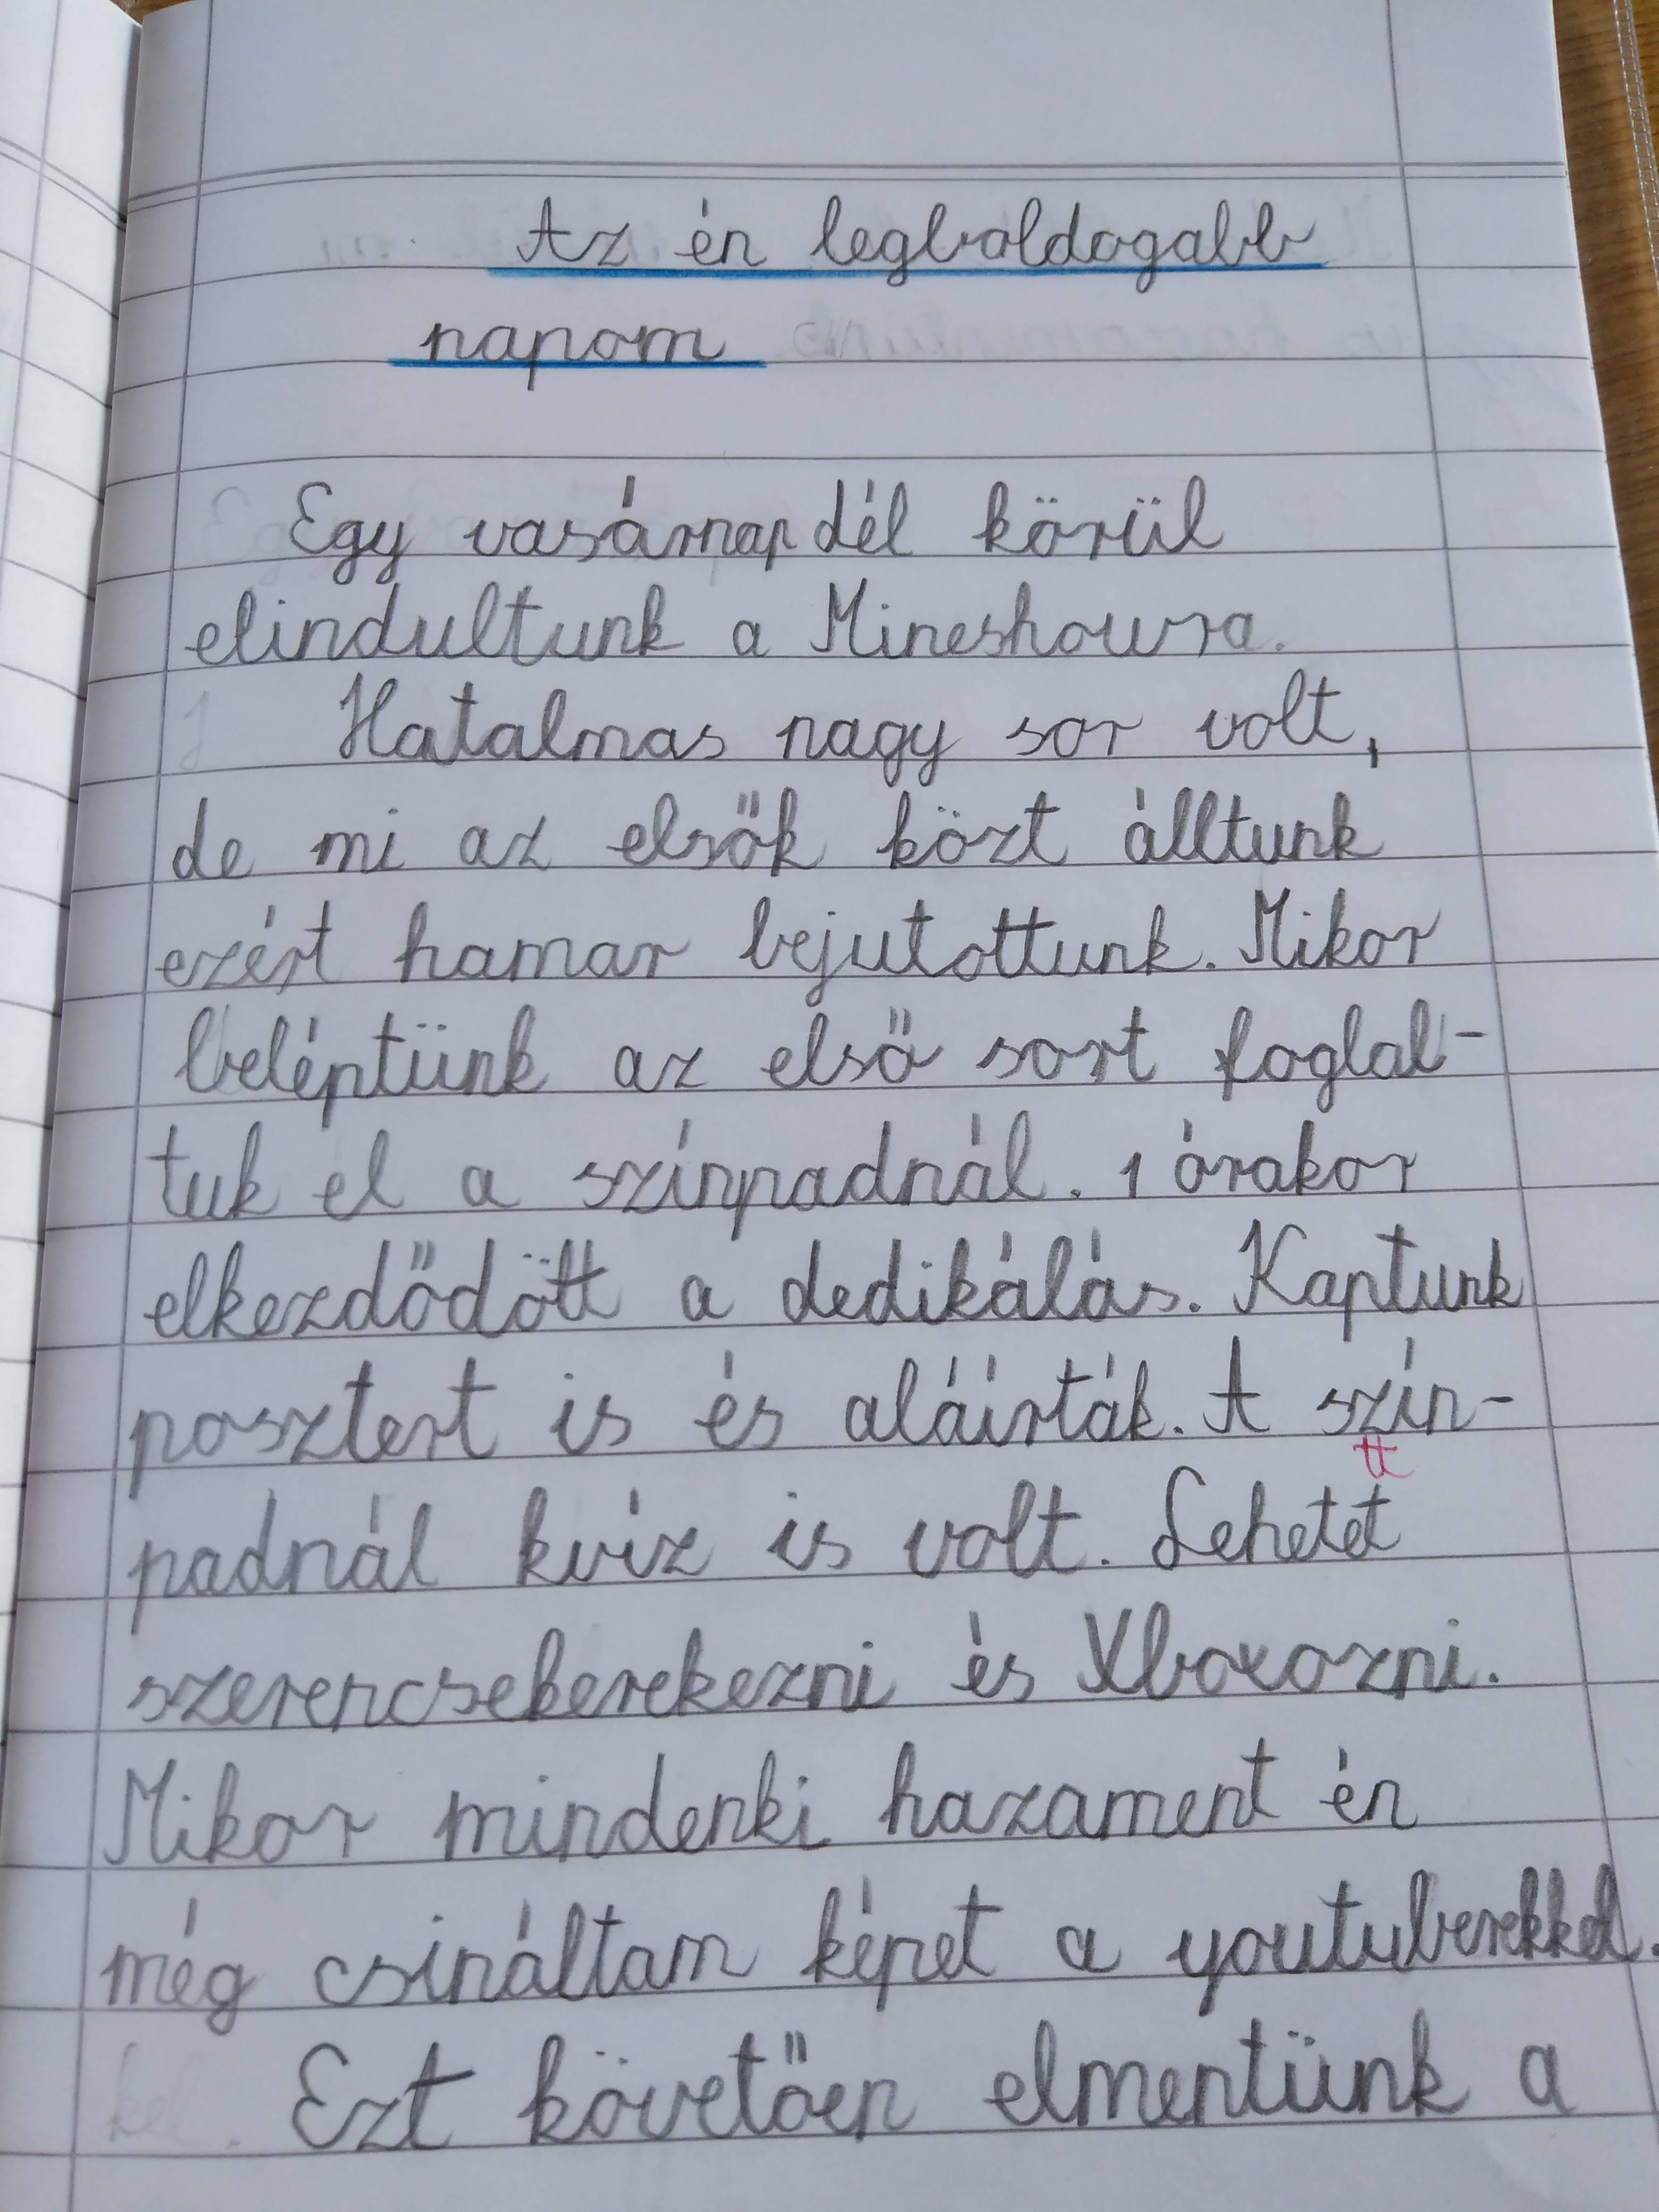 Az én legboldogabb
napom
Egy vasárnap dél körül
elindultunk a Mineshowra.
Hatalmas nagy sor volt,
de mi az elsők közt álltunk
ezért hamar bejutottunk. Mikor
beléptünk az első sort foglal-
tuk el a színpadnál. 1 órakor
elkezdődött a dedikálás. Kaptunk
posztert is és aláírták. A szín-
tt
padnál kvíz is volt. Lehetet
szerencsekerekezni és Xboxozni.
Mikor mindenki hazament én
még csináltam képet a youtuberekkel.
Ezt követően elmentünk a